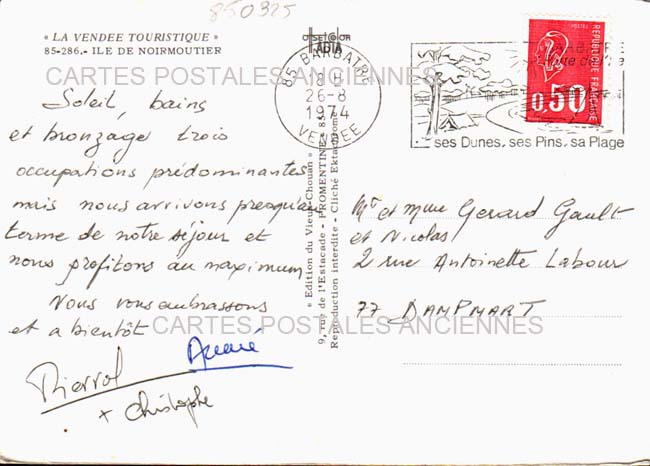 850325
« LA VENDEE TOURISTIQUE »
85-286.- ILE DE NOIRMOUTIER
OFSET COLOR
ADIA
CARTES POSTALES ANCIENNES
85 BARBATRE
26-8
1974
VENDEE
REPUBLIQUE FRANÇAISE
0,50
ses Dunes, ses Pins, sa Plage
Soleil, bains
et bronzage trois
occupations prédominantes
mais nous arrivons presqu'au
terme de notre séjour et
nous profitons au maximum
Nous vous embrassons
et a bientôt
Pierrot
+ Christophe
« Edition du Vieux Chouan »
9, rue de l'Estacade - FROMENTINE - 85
Reproduction interdite - Cliché Ektachrome
Mr et Mme Gerard Gault
et Nicolas
2 rue Antoinette Labour
77 DAMPMART
CARTES POSTALES ANCIENNES